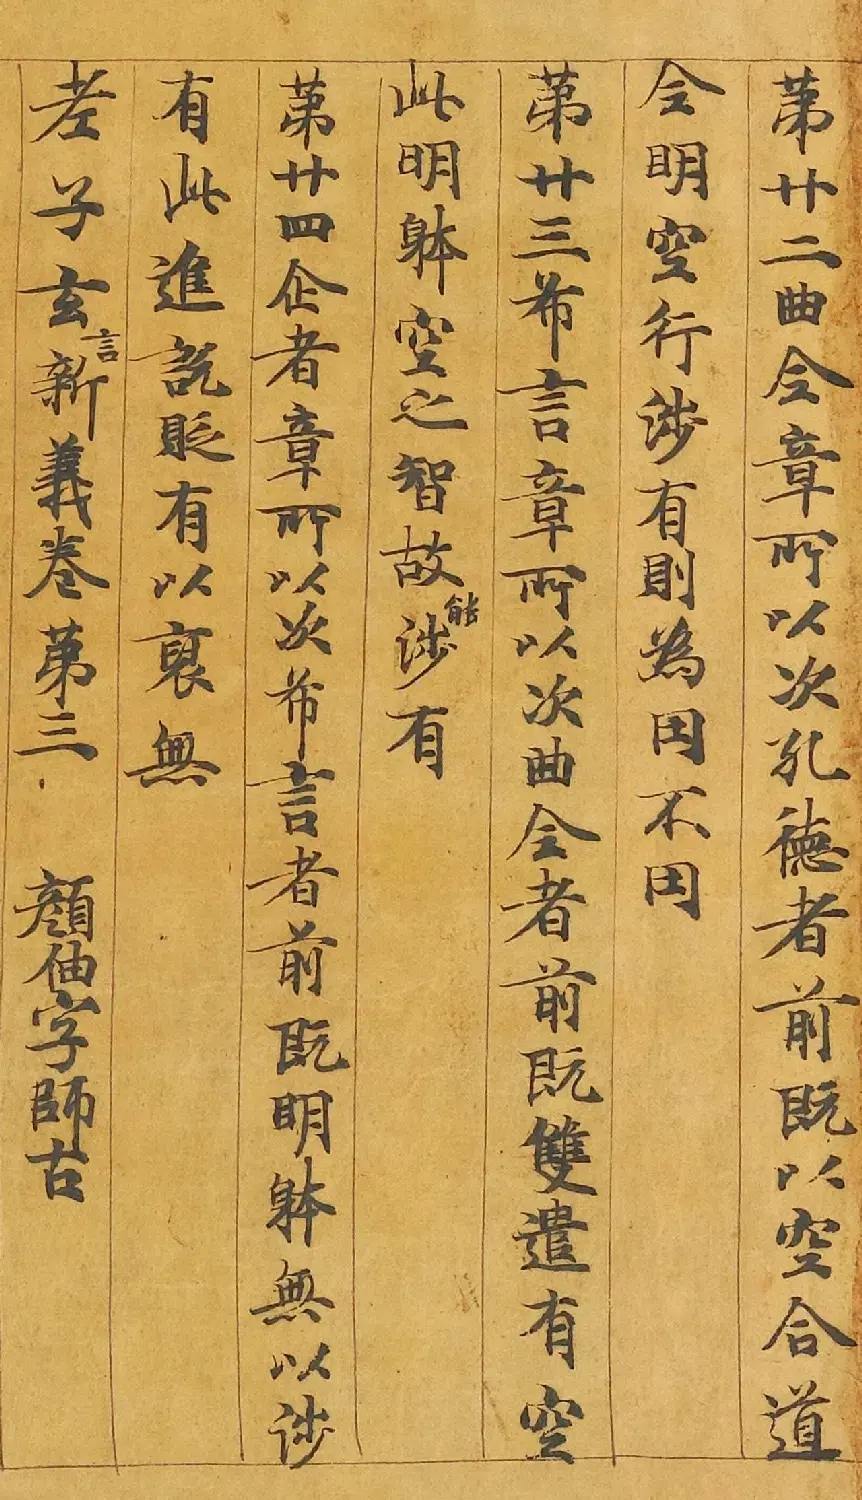 第廿二曲全章所以次孔德者前既以空合道
全明空行涉有則為因不因
第廿三希言章所以次曲全者前既雙遣有空
此明躰空之智故能涉有
第廿四企者章所以次希言者前既明躰無以涉
有此進說貶有以褒無
老子玄言新義卷第三 顏伷字師古